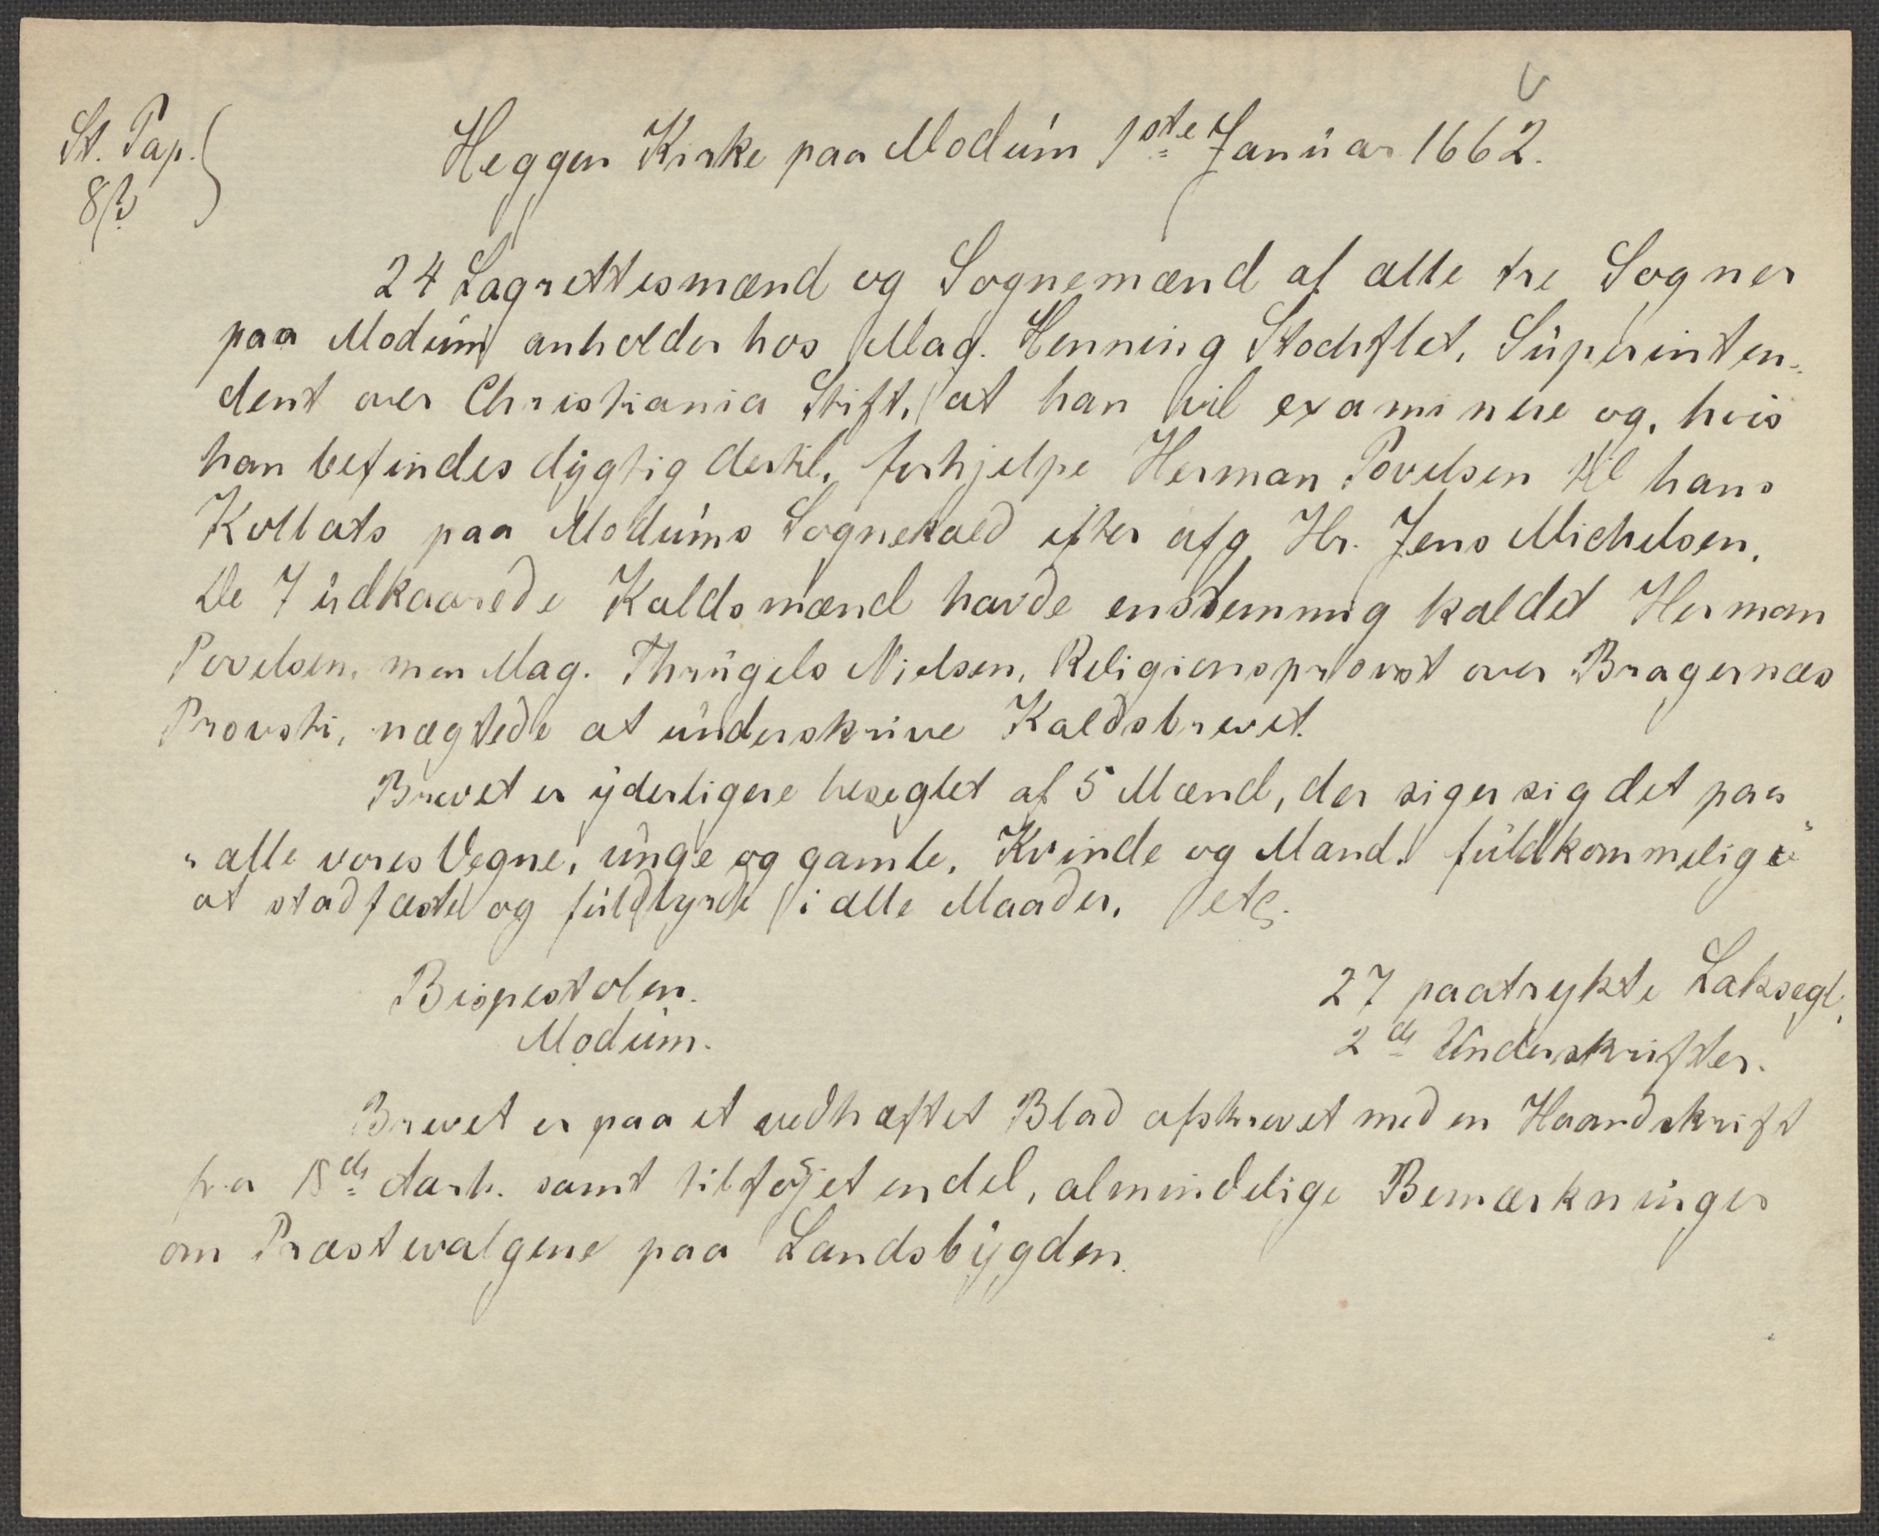 St. Pap.
Heggen Kirke paa Modum 1ste Januar 1662.
24 Lagrettesmænd og Sognemænd af alle tre Sogner
paa Modum anholder hos Mag. Henning Stochflet, Superinten-
dent over Christiania Stift, at han vil examinere og, hvis
han befindes dygtig dertil, forhjelpe Herman Povelsen til hans
Kollats paa Modums Sognekald efter afg. Hr. Jens Michelsen.
De 7 udkaarede Kaldsmænd havde enstemmig kaldet Herman
Povelsen, men Mag. Thrugels Nielsen, Religionsprovst over Bragernæs
Provsti, nægtede at underskrive Kaldsbrevet.
Brevet er yderligere beseglet af 5 Mænd, der siger sig det paa
"alle vores Vegne, unge og gamle, Kvinde og Mand, fuldkommelige"
at stadfæste og fuldbyrde i alle Maader, etc.
Bispestolen.
27 paatrykte Laksegl,
Modum.
2de Underskrifter.
Brevet er paa et vedhæftet Blad afskrevet med en Haandskrift
fra 18de Aarh. samt tilføjet endel, almindelige Bemærkninger
om Præstevalgene paa Landsbygden.